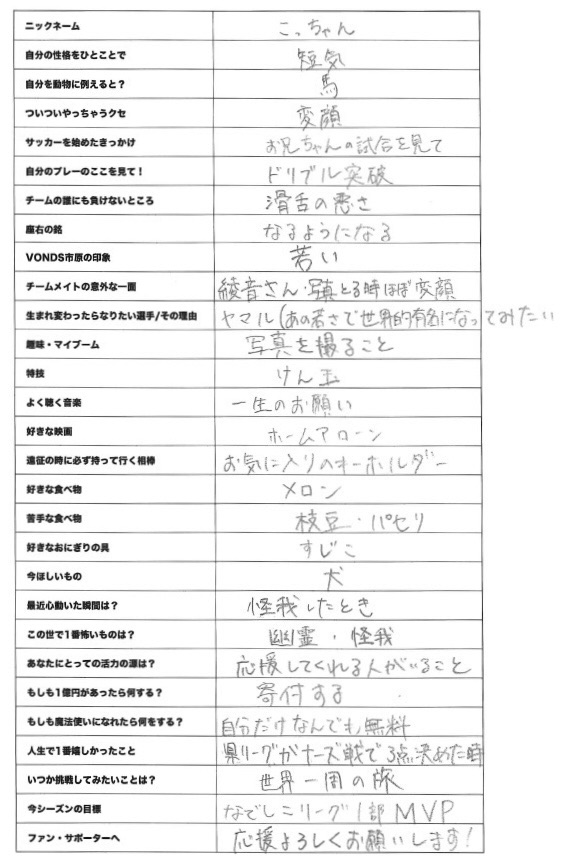 ニックネーム こっちゃん
自分の性格をひとことで 短気
自分を動物に例えると？ 馬
ついついやっちゃうクセ 変顔
サッカーを始めたきっかけ お兄ちゃんの試合を見て
自分のプレーのここを見て！ ドリブル突破
チームの誰にも負けないところ 滑舌の悪さ
座右の銘 なるようになる
VONDS市原の印象 若い
チームメイトの意外な一面 綾音さん・写真とる時ほぼ変顔
生まれ変わったらなりたい選手/その理由 ヤマル(あの若さで世界的有名になってみたい
趣味・マイブーム 写真を撮ること
特技 けん玉
よく聴く音楽 一生のお願い
好きな映画 ホームアローン
遠征の時に必ず持って行く相棒 お気に入りのキーホルダー
好きな食べ物 メロン
苦手な食べ物 枝豆・パセリ
好きなおにぎりの具 すじこ
今ほしいもの 犬
最近心動いた瞬間は？ 怪我したとき
この世で1番怖いものは？ 幽霊・怪我
あなたにとっての活力の源は？ 応援してくれる人がいること
もしも1億円があったら何する？ 寄付する
もしも魔法使いになれたら何をする？ 自分だけなんでも無料
人生で1番嬉しかったこと 県リーグガナーズ戦で3点決めた時
いつか挑戦してみたいことは？ 世界一周の旅
今シーズンの目標 なでしこリーグ1部MVP
ファン・サポーターへ 応援よろしくお願いします！